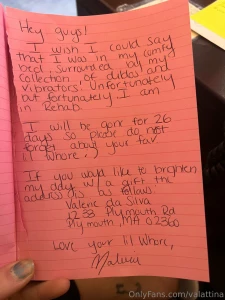 Hey guys!
I wish I could say
that I was in my comfy
bed, surrounded by my
collection of dildos and
vibrators. Unfortunately
but fortunately I am
in Rehab.
I will be gone for 26
days so please do not
forget about your fav
lil whore.
If you would like to brighten
my day w/ a gift the
address is as follows:
Valerie da Silva
1233 Plymouth Rd
Plymouth, MA 02360
Love your lil Whore,
OnlyFans.com/valattina